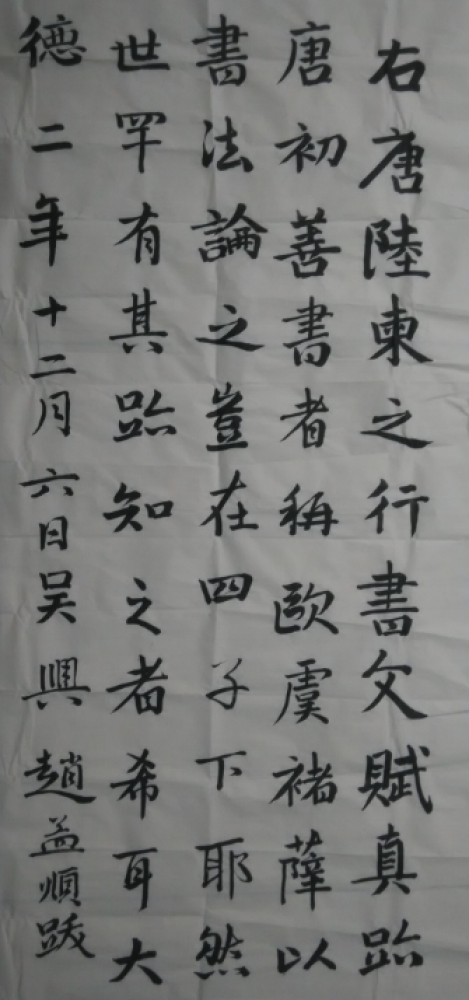 右唐陸柬之行書文賦真跡
唐初善書者稱歐虞褚薛以
書法論之豈在四子下耶然
世罕有其跡知之者希耳大
德二年十二月六日吴興趙孟順跋